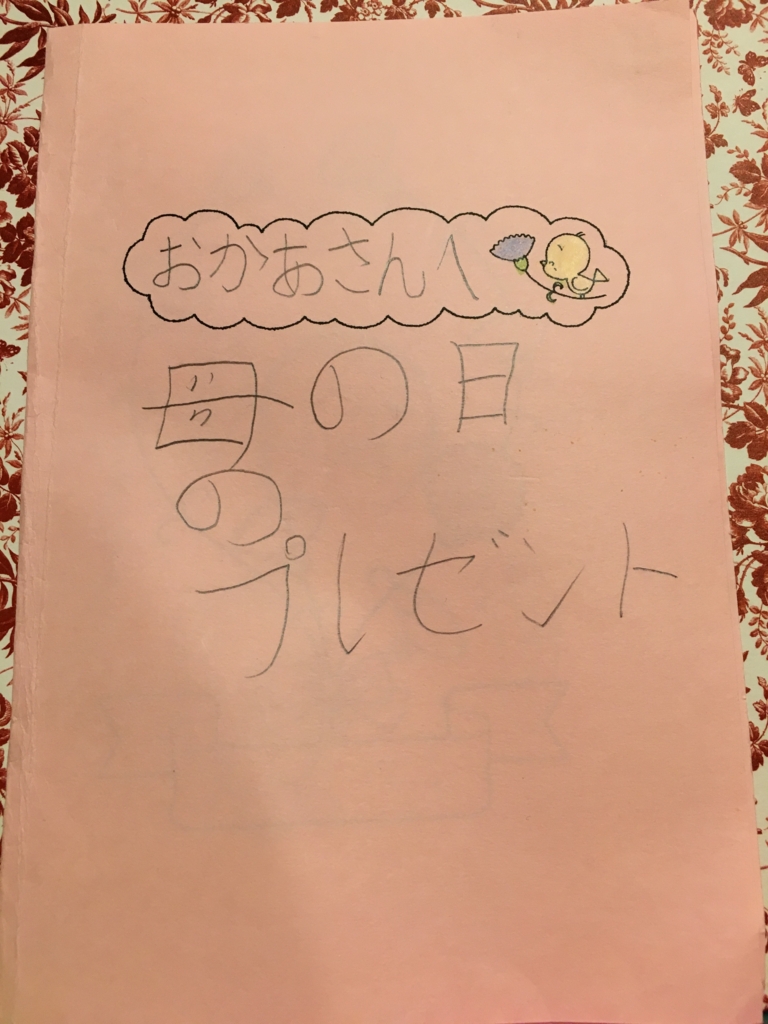 おかあさんへ
母の日
の
プレゼント